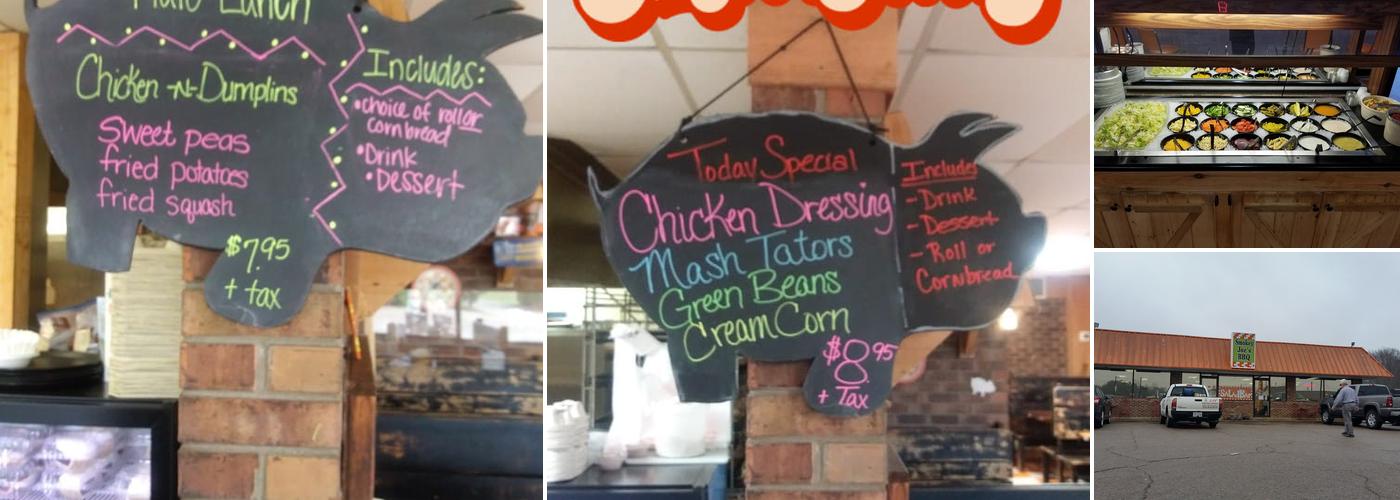 Plate Lunch
Chicken -N- Dumplins
Sweet peas
fried potatoes
fried squash
$7.95
+ tax
Includes:
• choice of roll or
cornbread
• Drink
• Dessert
Today Special
Chicken Dressing
Mash Tators
Green Beans
Cream Corn
$8.95
+ Tax
Includes
- Drink
- Dessert
- Roll or
Cornbread
Smokey
Joe's
BBQ
Salad Bar